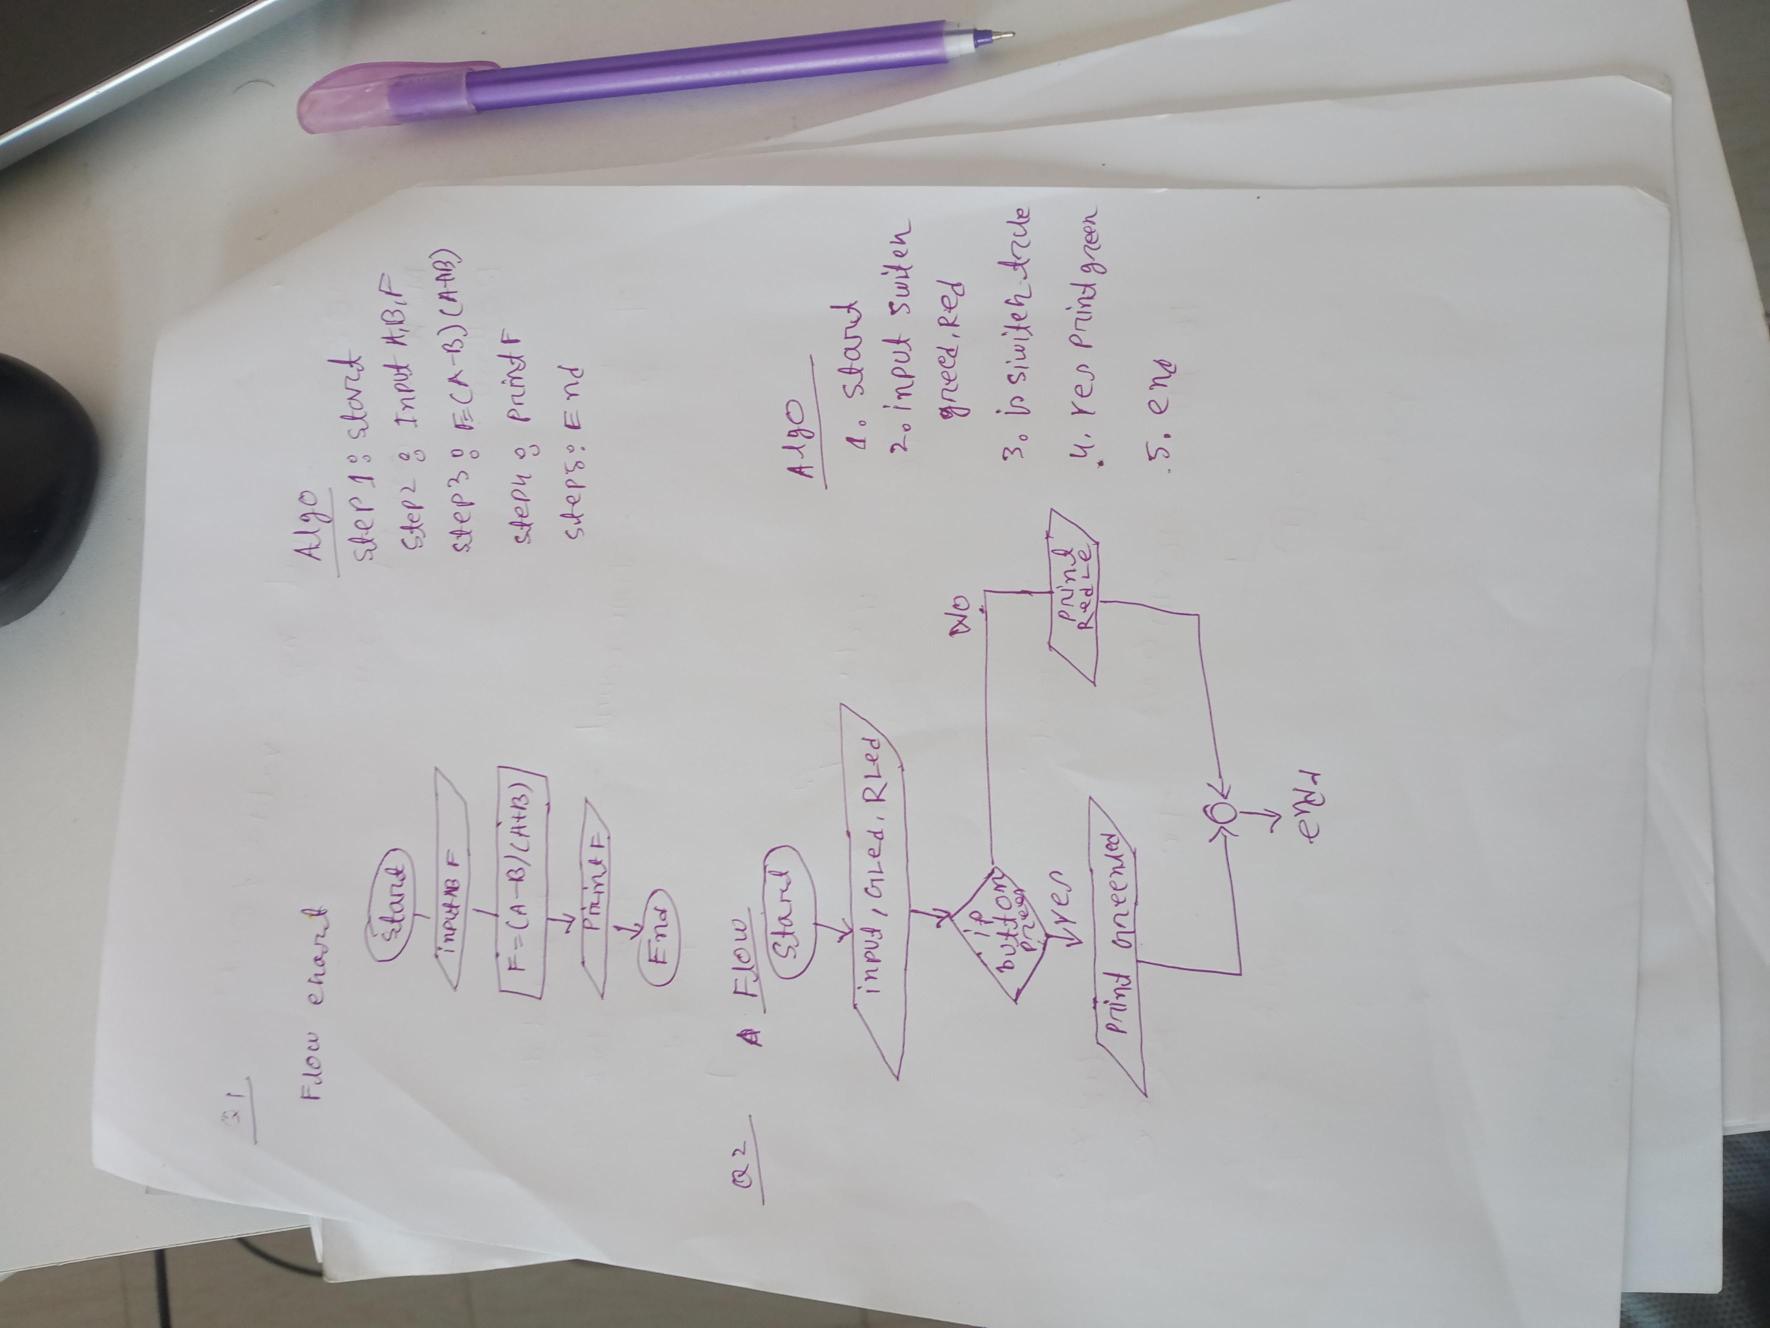 Q1
Flow chart
Start
input AB F
F=(A-B)(A+B)
Print F
End
Algo
Step 1: Start
Step2: Input A,B,F
Step3: F=(A-B)(A+B)
Step4: Print F
Step5: End
Q2
A Flow
Start
input, GLed, RLed
ip
button
press
No
Yes
Print Greenled
Print
RedLe
end
Algo
1. Start
2. input switch
greed, Red
3. is siwitch true
4. Yes Print green
5. end